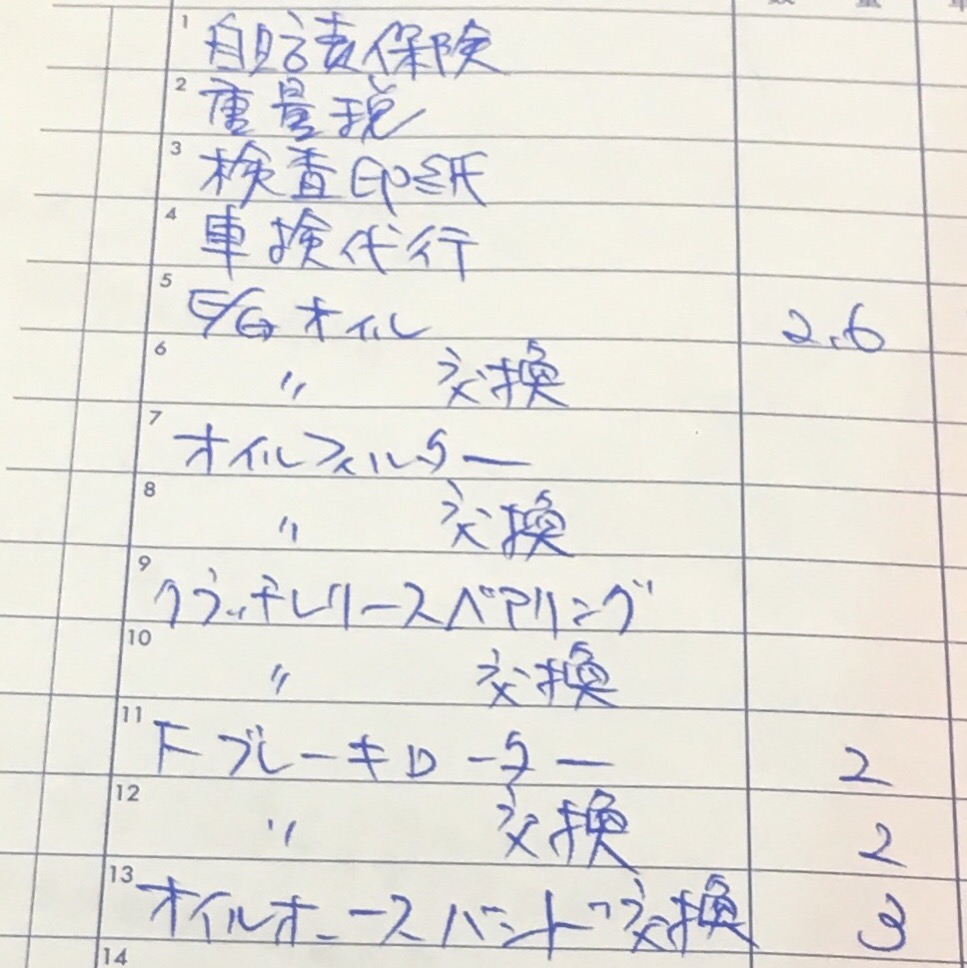 1 自賠責保険
2 重量税
3 検査印紙
4 車検代行
5 E/Gオイル 2.6
6 〃 交換
7 オイルフィルター
8 〃 交換
9 クラッチレリースベアリング
10 〃 交換
11 Fブレーキローター 2
12 〃 交換 2
13 オイルホースバンド交換 3
14